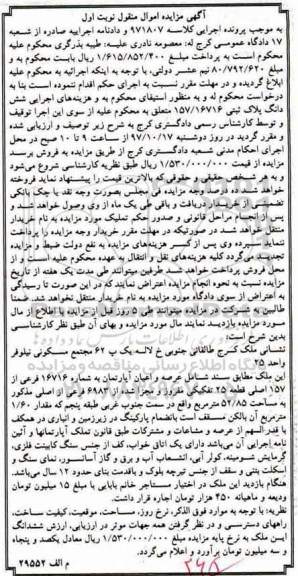 آگهی مزایده اموال منقول نوبت اول
به موجب پرونده اجرایی کلاسه ۹۷۱۸۰۷ و دادنامه اجراییه صادره از شعبه
۱۷ دادگاه عمومی کرج له: معصومه نادری علیه: طیبه بذرگری محکوم علیه
محکوم است به پرداخت مبلغ ۱/۶۱۵/۸۵۲/۴۰۰ ریال بابت محکوم به و
۸۰/۷۹۲/۶۲۰ نیم عشر دولتی، با توجه به اینکه اجرائیه به محکوم علیه
ابلاغ گردیده و در مهلت مقرر نسبت به اجرای حکم اقدام ننموده است بنا به
درخواست محکوم له و به منظور استیفای محکوم به و هزینه‌های اجرایی شش
دانگ پلاک ثبتی ۱۵۷/۱۶۷۱۶ متعلق به محکوم علیه از سوی این اجرا توقیف
و توسط کارشناس رسمی دادگستری کرج به شرح زیر توصیف و ارزیابی شده
و مقرر گردید در روز دوشنبه ۹۷/۱۰/۱۷ از ساعت ۹ تا ۱۰ صبح در محل
اجرای احکام مدنی شعبه دادگستری کرج از طریق مزایده به فروش برسد
مزایده از قیمت ۱/۵۳۰/۰۰۰/۰۰۰ ریال طبق نظریه کارشناسی شروع می‌شود
و به هر شخص حقیقی و حقوقی که بالاترین قیمت را پیشنهاد نماید فروخته
خواهد شد ده درصد وجه مزایده فی المجلس بصورت وجه نقد یا چک بانکی
تضمینی دریافت و باقی طی یک ماه از وی وصول خواهد شد
پس از انجام مراحل قانونی و صدور حکم تملیک مورد مزایده به نام خریدار
منتقل خواهد شد در صورتیکه در مهلت مقرر خریدار وجه مزایده را پرداخت
ننماید سپرده وی پس از کسر هزینه‌های مزایده به نفع دولت ضبط و مزایده
تجدید می‌گردد کلیه هزینه‌های نقل و انتقال به عهده محکوم علیه است و از
محل فروش پرداخت خواهد شد طرفین میتوانند طی مدت یک هفته از تاریخ
مزایده نسبت به نحوه انجام مزایده اعتراض نمایند که در این صورت تا رسیدگی
به اعتراض از سوی دادگاه مورد مزایده به نام خریدار منتقل نخواهد شد. ضمنا
طالبین و شرکت در مزایده میتوانند طی ۵ روز قبل از مزایده با اطلاع از مال
مورد مزایده بازدید نمایند مال مورد مزایده و بهای آن طبق نظر کارشناسی
بدین شرح است:
نشانی ملک کرج طالقانی جنوبی خ لاله یک پ ۶۲ مجتمع مسکونی نیلوفر
واحد ۲۵
این ملک مطابق سند شامل عرصه و اعیان آپارتمان به شماره ۱۶۷۱۶ فرعی از
۱۵۷ اصلی قطعه ۲۵ تفکیکی مفروز و مجزا شده از ۶۹۸۷ فرعی از اصلی مذکور
به مساحت ۵۱/۸۵ مترمربع واقع در سمت جنوب غربی طبقه پنجم که مقدار ۱/۶۰
مترمربع آن بالکن مسقف است بانضمام پارکینگ در زیرزمین و انباری در همکف
با قدرالسهم از عرصه و مشاعات و مشترکات طبق قانون تملک آپارتمانها و آئین
نامه اجرایی آن می‌باشد دارای یک اتاق خواب، کف از جنس سنگ کابینت فلزی،
گرمایش شومینه، کولر آبی، انشعاب آب و برق و گاز، آسانسور، نمای سنگ و
اسکلت بتنی و سقف از جنس تیرچه بلوک و باقدمت بنای حدود ۱۲ سال می‌باشد.
هنگام بازدید این ملک در اختیار مستاجر خانم بابایی با مبلغ ۱۵ میلیون تومان
ودیعه و ماهیانه ۴۵۰ هزار تومان اجاره قرار داشت.
نظریه: با توجه به موارد فوق الذکر، نرخ روز، مساحت، موقعیت، کیفیت ساخت،
راههای دسترسی و در نظر گرفتن همه جهات موثر در ارزیابی، ارزش ششدانگ
این ملک به نرخ پایه مزایده مبلغ ۱/۵۳۰/۰۰۰/۰۰۰ ریال معادل یکصد و پنجاه
و سه میلیون تومان برآورد و اعلام می‌گردد.
م الف ۲۹۵۵۲